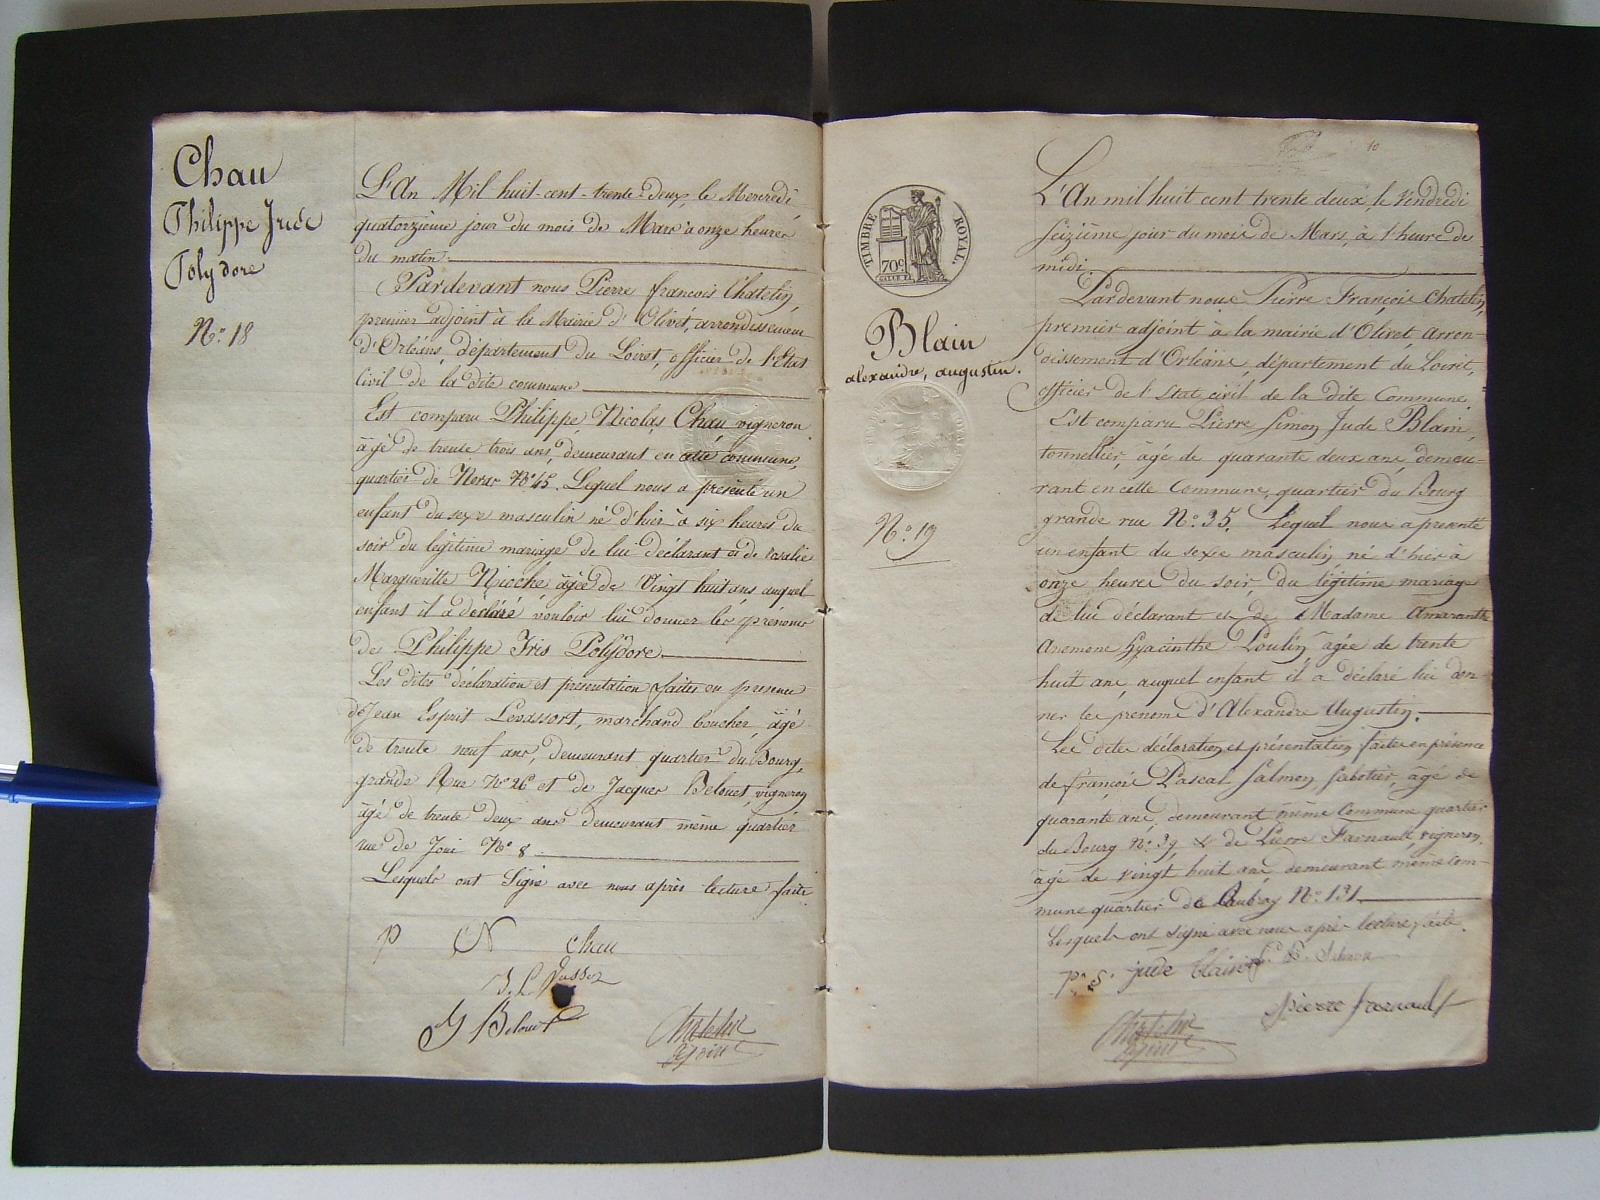 Chau
Philippe Jude
Polydore
N.o 18
L'An Mil huit-cent-trente-deux, le Mercredi
quatorzième jour du mois de Mars à onze heures
du matin.
Pardevant nous Pierre françois Chatelin,
premier adjoint à la Mairie d'Olivet, arrondissement
d'Orléans, département du Loiret, officier de l'Etat
Civil de la dite commune
Est comparu Philippe Nicolas Chau vigneron
âgé de trente trois ans, demeurant en cette commune,
quartier de Noras N.o 45. Lequel nous a présenté un
enfant du sexe masculin né d'hier à six heures du
soir du légitime mariage de lui déclarant et de rosalie
Margueritte Nioche âgée de Vingt huit ans auquel
enfant il a déclaré vouloir lui donner les prénoms
de Philippe Iris Polydore
Les dites déclaration et présentation faites en présence
de Jean Esprit Levassort, marchand boucher, âgé
de trente neuf ans, demeurant quartier du Bourg,
grande Rue N.o 26 et de Jacques Belouet, vigneron
âgé de trente deux ans demeurant même quartier
rue de Joui N.o 8
Lesquels ont Signé avec nous après lecture faite.
P N chau
J Belouet
Chatelin
adjoint
10
TIMBRE ROYAL.
70c
Blain
alexandre, augustin.
N.o 19
L'An mil huit cent trente deux, le Vendredi
seizième jour du mois de Mars, à l'heure de
midi.
Pardevant nous Pierre François Chatelin,
premier adjoint à la mairie d'Olivet, arron-
dissement d'Orléans, département du Loiret,
officier de l'Etat civil de la dite Commune.
Est comparu Pierre Simon Jude Blain,
tonnellier, âgé de quarante deux ans, demeu-
rant en cette Commune, quartier du Bourg
grande rue N.o 35. Lequel nous a présenté
un enfant du sexe masculin, né d'hier à
onze heures du soir, du légitime mariage
de lui déclarant et de Madame Amaranthe
Anemone Hyacinthe Poulin âgée de trente
huit ans, auquel enfant il a déclaré lui don-
ner les prénoms d'Alexandre Augustin.
Les dites déclaration et présentation faites en présence
de françois Pascal Salmon, sabotier, âgé de
quarante ans, demeurant même Commune quartier
du Bourg N.o 39 & de Pierre Farnault, vigneron,
âgé de vingt huit ans demeurant même com-
mune quartier de Caubray N.o 131
Lesquels ont signé avec nous après lecture faite.
P. S. jude blain
Pierre farnault
Chatelin
adjoint